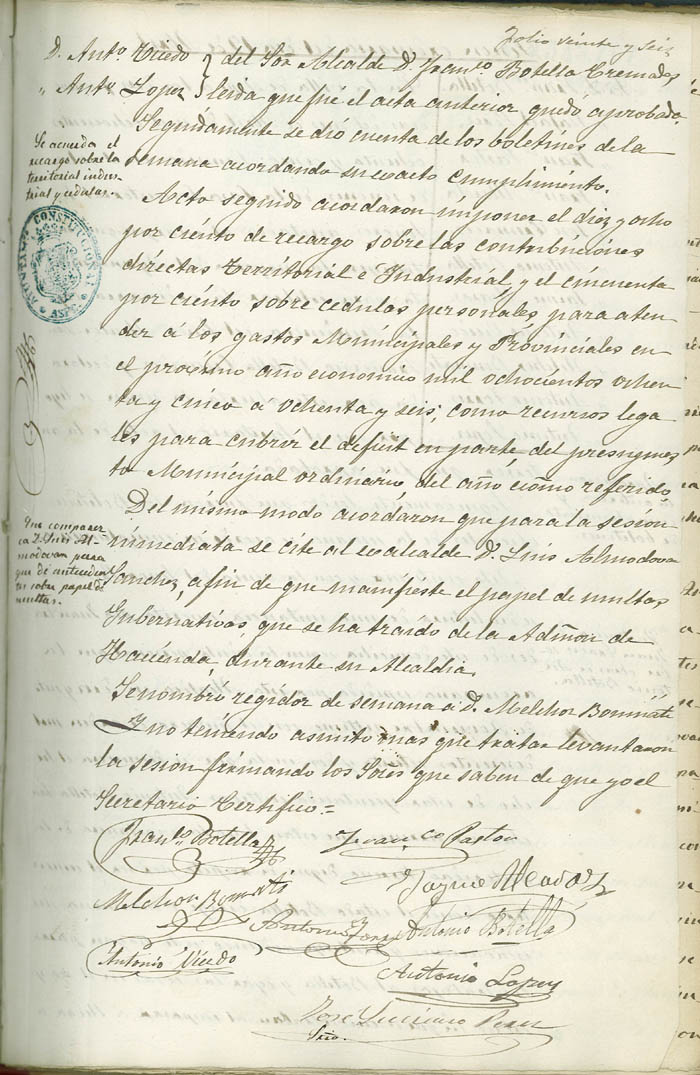 Folio veinte y seis
D. Anto. Vicedo } del Sor. Alcalde D. Franco. Botella Cremades
" Anto. Lopez } leida que fué el acta anterior quedó aprobada.
Seguidamente se dió cuenta de los boletines de la
semana acordando su exacto cumplimiento.
Se acuerda el
recargo sobre la
territorial indus-
trial y cedulas.
AYUNTAM. CONSTITUCIONAL
* ASPE *
Acto seguido acordaron imponer el diez y ocho
por ciento de recargo sobre las contribuciones
directas Territorial e Industrial, y el cincuenta
por ciento sobre cedulas personales para aten
der á los gastos Municipales y Provinciales en
el proximo año economico mil ochocientos ochen
ta y cinco á ochenta y seis, como recursos lega
les para cubrir el deficit en parte, del presupues
to Municipal ordinario, del año eco̅mo referido.
Que comparez
ca D. Luis Al-
modovar para
que dé anteceden
tes sobre papel de
multas.
Del mismo modo acordaron que para la sesion
inmediata se cite al exalcalde D. Luis Almodovar
Sanchez, a fin de que manifieste el papel de multas
Gubernativas, que se ha traido de la Admõn de
Hacienda, durante su Alcaldia.
Se nombró regidor de semana á D. Melchor Bonmatí
Y no teniendo asunto mas que tratar levantaron
la sesion firmando los Sores que saben de que yo el
Secretario Certifico.=
Franco. Botella
Franco Pastor
Jayme Alcaraz
Melchor Bonmati
Antonio
Antonio Botella
Antonio Vicedo
Antonio Lopez
Jose Perez
Srio.